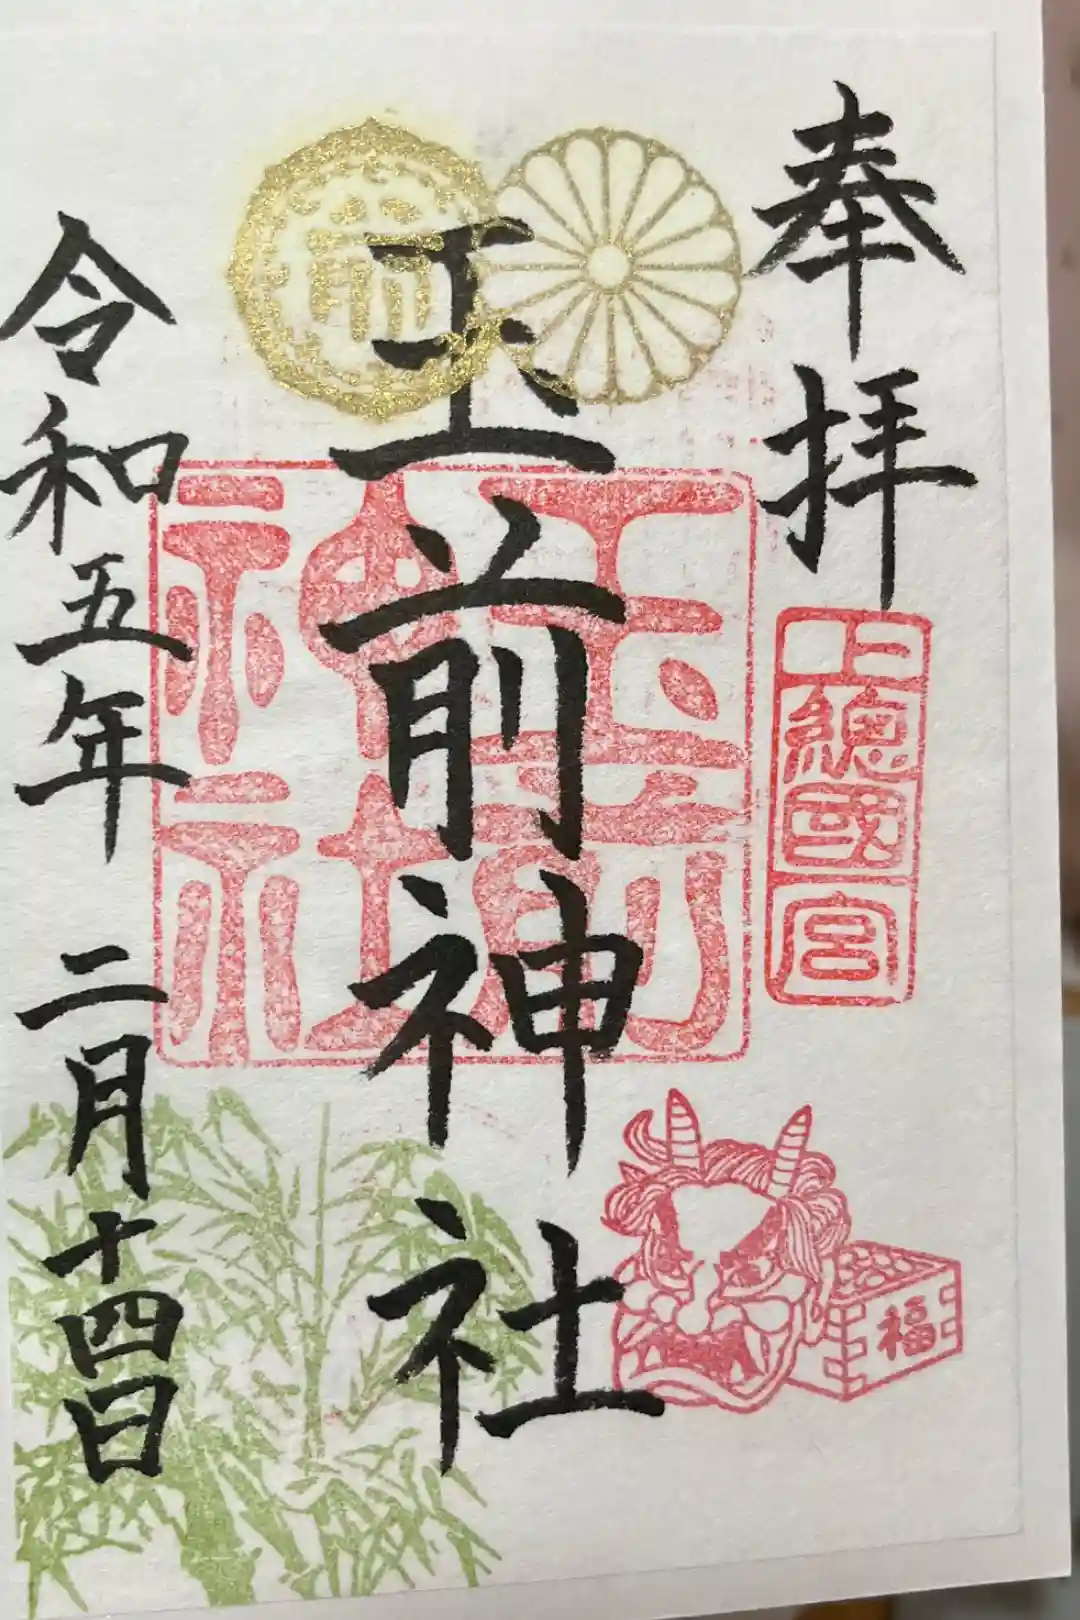 奉拝
上總國一宮
玉前神社
玉前
神社
令和五年 二月十四日
福